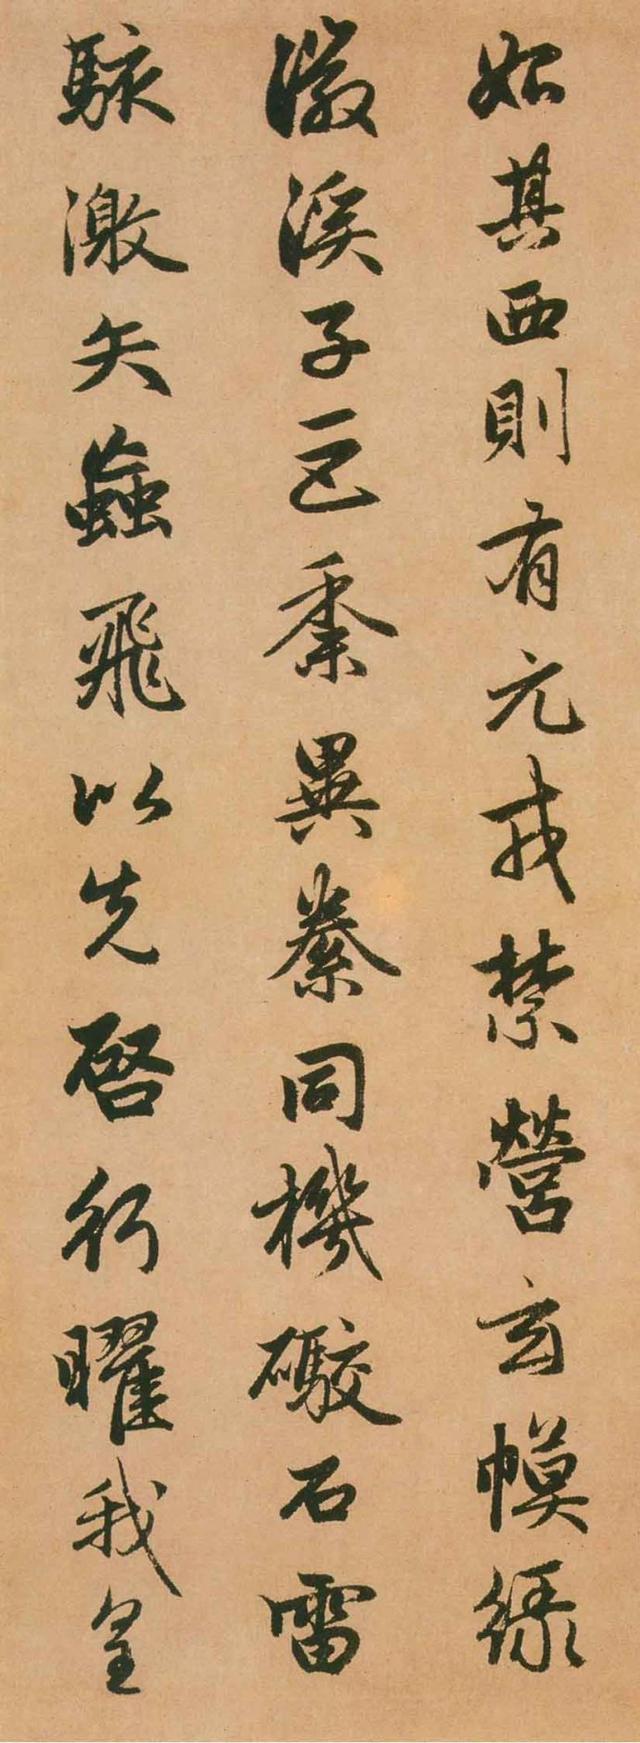 始其西則有元戎禁營玄幙綠
徽溪子巨黍異絭同機礮石雷
駭激矢蝱飛以先啓行曜我皇